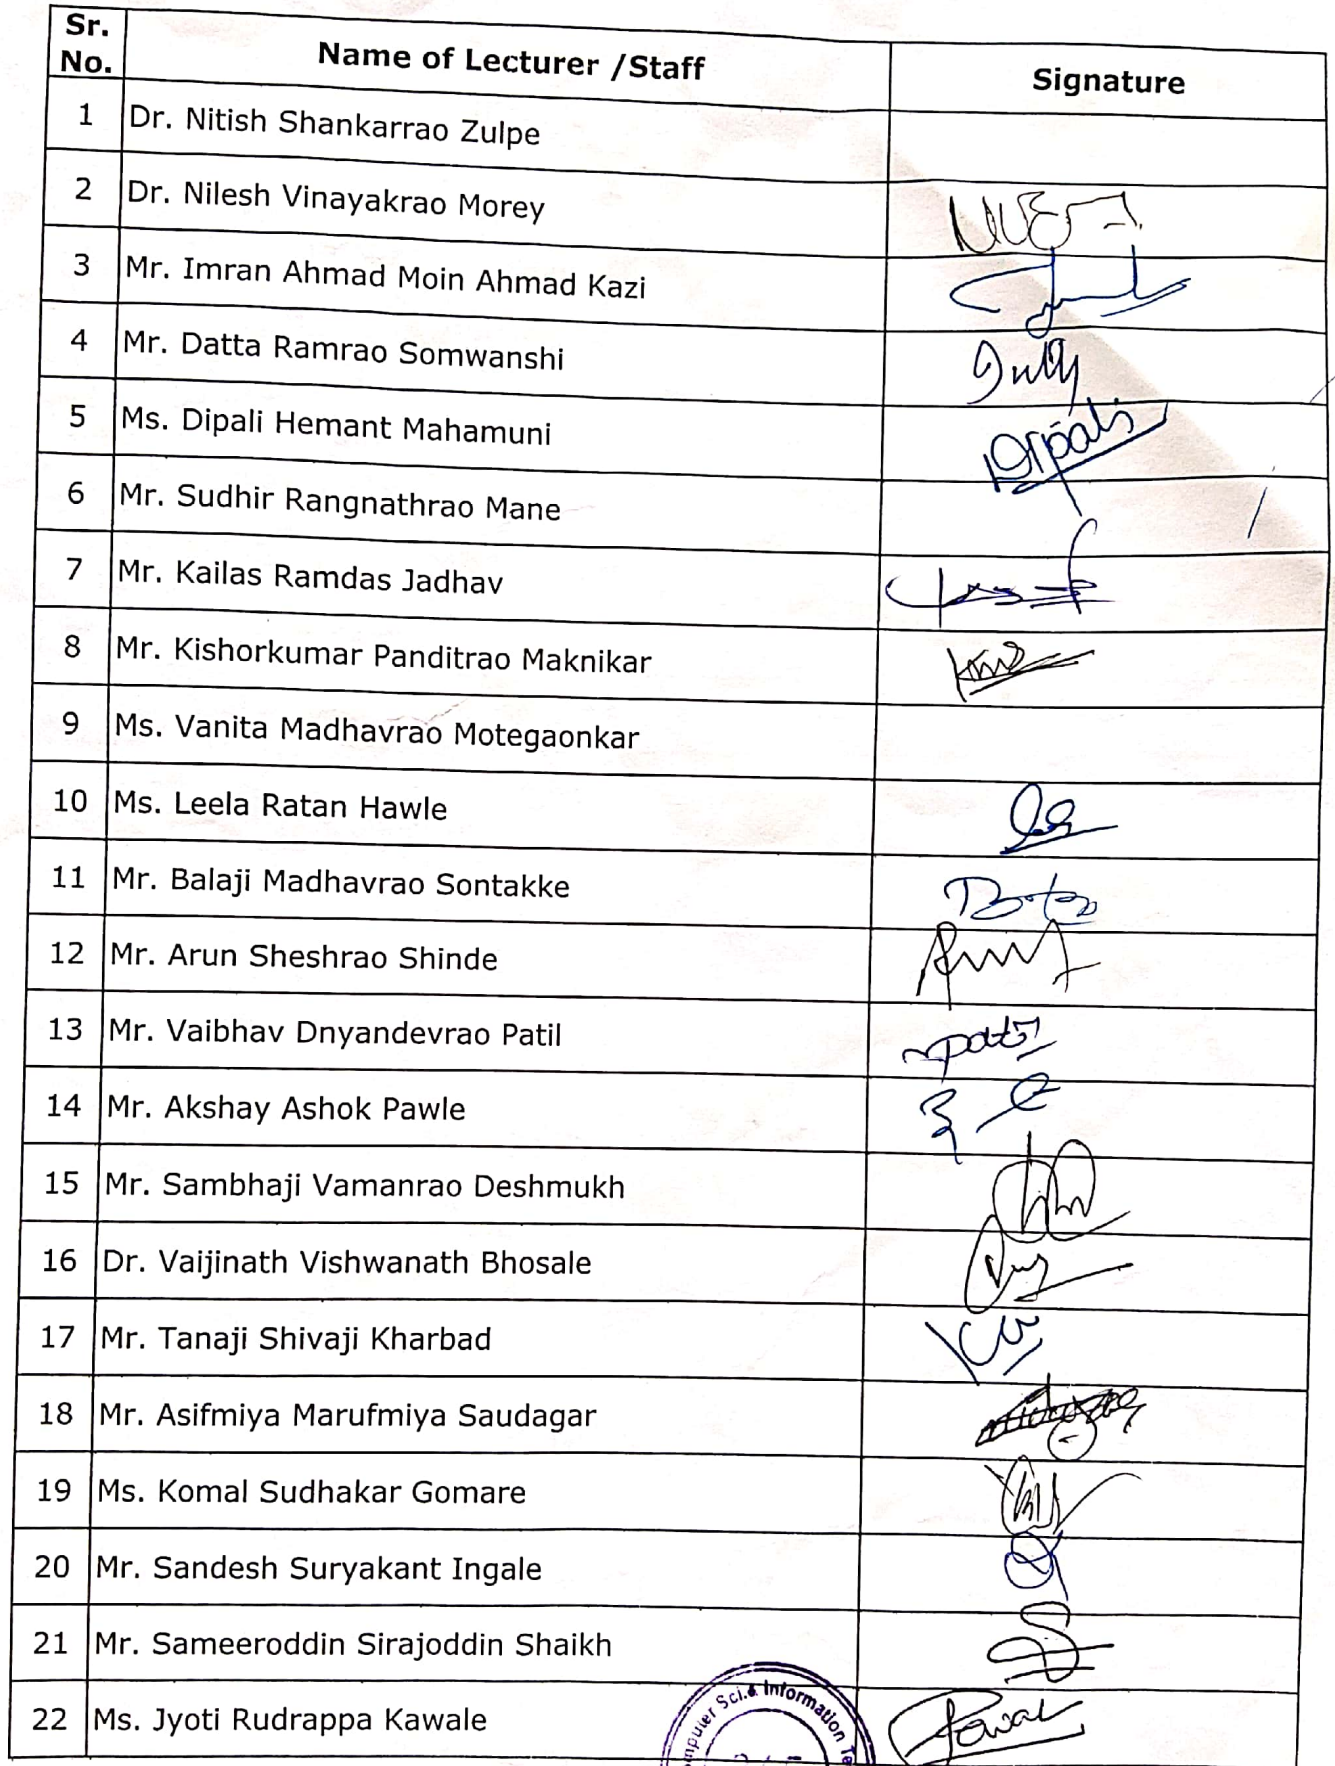 Sr. No. Name of Lecturer /Staff Signature
1 Dr. Nitish Shankarrao Zulpe
2 Dr. Nilesh Vinayakrao Morey
3 Mr. Imran Ahmad Moin Ahmad Kazi
4 Mr. Datta Ramrao Somwanshi
5 Ms. Dipali Hemant Mahamuni Dipali
6 Mr. Sudhir Rangnathrao Mane
7 Mr. Kailas Ramdas Jadhav
8 Mr. Kishorkumar Panditrao Maknikar
9 Ms. Vanita Madhavrao Motegaonkar
10 Ms. Leela Ratan Hawle
11 Mr. Balaji Madhavrao Sontakke
12 Mr. Arun Sheshrao Shinde
13 Mr. Vaibhav Dnyandevrao Patil
14 Mr. Akshay Ashok Pawle
15 Mr. Sambhaji Vamanrao Deshmukh
16 Dr. Vaijinath Vishwanath Bhosale
17 Mr. Tanaji Shivaji Kharbad
18 Mr. Asifmiya Marufmiya Saudagar
19 Ms. Komal Sudhakar Gomare
20 Mr. Sandesh Suryakant Ingale
21 Mr. Sameeroddin Sirajoddin Shaikh
22 Ms. Jyoti Rudrappa Kawale
Sci.& Information